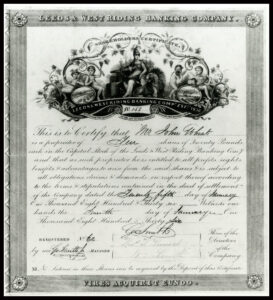 LEEDS & WEST RIDING BANKING COMPANY.
SHAREHOLDERS CERTIFICATE.
LEEDS & WEST RIDING BANKING COMPY
No 152
This is to Certify that Mr John
is a proprietor of shares of Twenty Pounds
each in the Capital Stock of the Leeds & West Riding Banking Compy
and that as such proprietor he is entitled to all profits, rights
benefits & advantages to arise from the said shares & is subject to
all obligations, claims & demands in respect thereof according
to the terms & stipulations contained in the deed of settlement
of the Company dated the Twenty fifth day of January
One Thousand Eight Hundred & Thirty Witness our
hands the day of January One
Thousand Eight Hundred & Thirty
REGISTERED No
by me MANAGER
Three of the
Directors
of the
Company
NB. No Interest in these Shares can be acquired by the Deposit of this Certificate
VIRES ACQUIRIT EUNDO